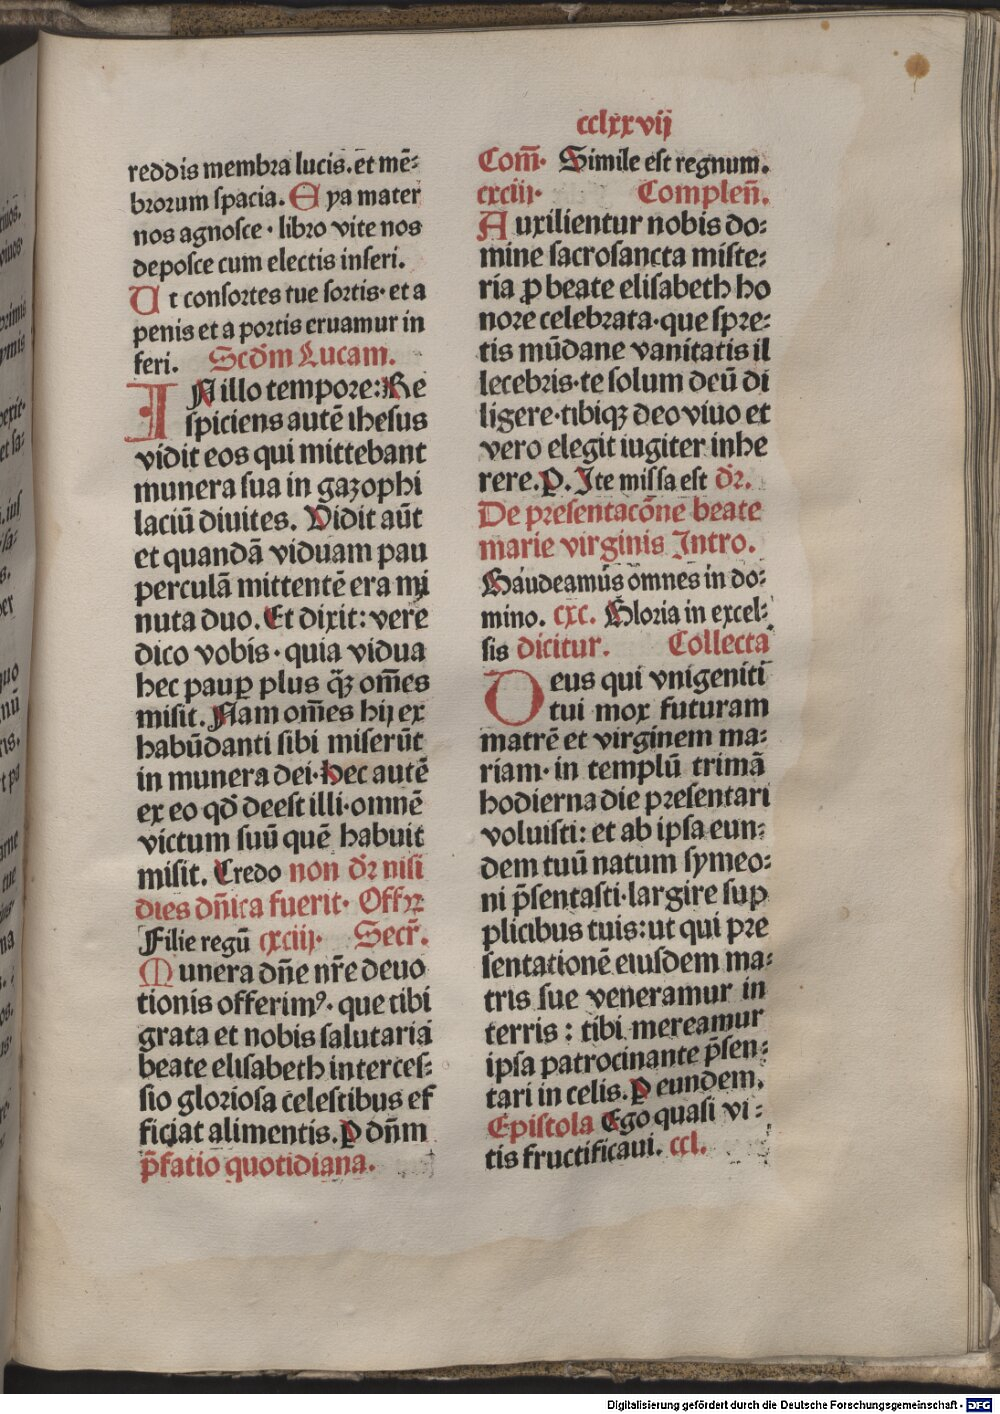 cclxxvij
reddis membra lucis. et mē-
brorum spacia. Eya mater
nos agnosce · libro vite nos
deposce cum electis inseri.
Ut consortes tue sortis · et a
penis et a portis eruamur in
feri. Scd̄m Lucam.
IN illo tempore: Re
spiciens autē ihesus
vidit eos qui mittebant
munera sua in gazophi
laciū diuites. Vidit aūt
et quandā viduam pau
perculā mittentē era mi
nuta duo. Et dixit: vere
dico vobis · quia vidua
hec paup̲ plus q̄ꝫ om̄es
misit. Nam om̄es hij ex
habūdanti sibi miserūt
in munera dei · hec autē
ex eo qd̄ deest illi · omnē
victum suū quē habuit
misit. Credo non dr̄ nisi
dies dn̄ica fuerit · Offꝛꝫ
Filie regū cxciij · Secr̄.
Munera dn̄e nr̄e deuo
tionis offerimꝰ · que tibi
grata et nobis salutaria
beate elisabeth interces-
sio gloriosa celestibus ef
ficiat alimentis. P dn̄m
p̄fatio quotidiana.
Com̄. Simile est regnum.
cxciij · Complen̄.
Auxilientur nobis do-
mine sacrosancta miste-
ria ꝓ beate elisabeth ho
nore celebrata · que spre-
tis mūdane vanitatis il
lecebris · te solum deū di
ligere · tibiqꝫ deo viuo et
vero elegit iugiter inhe
rere. P. Ite missa est dr̄.
De presentacōne beate
marie virginis Intro.
Gaudeamus omnes in do-
mino. cxc. Gloria in excel-
sis dicitur. Collecta
Deus qui vnigeniti
tui mox futuram
matrē et virginem ma-
riam · in templū trimā
hodierna die presentari
voluisti: et ab ipsa eun-
dem tuū natum symeo-
ni p̄sentasti · largire sup
plicibus tuis: ut qui pre
sentationē eiusdem ma-
tris sue veneramur in
terris: tibi mereamur
ipsa patrocinante p̄sen-
tari in celis. P eundem.
Epistola Ego quasi vi-
tis fructificaui. ccl.
Digitalisierung gefördert durch die Deutsche Forschungsgemeinschaft - DFG